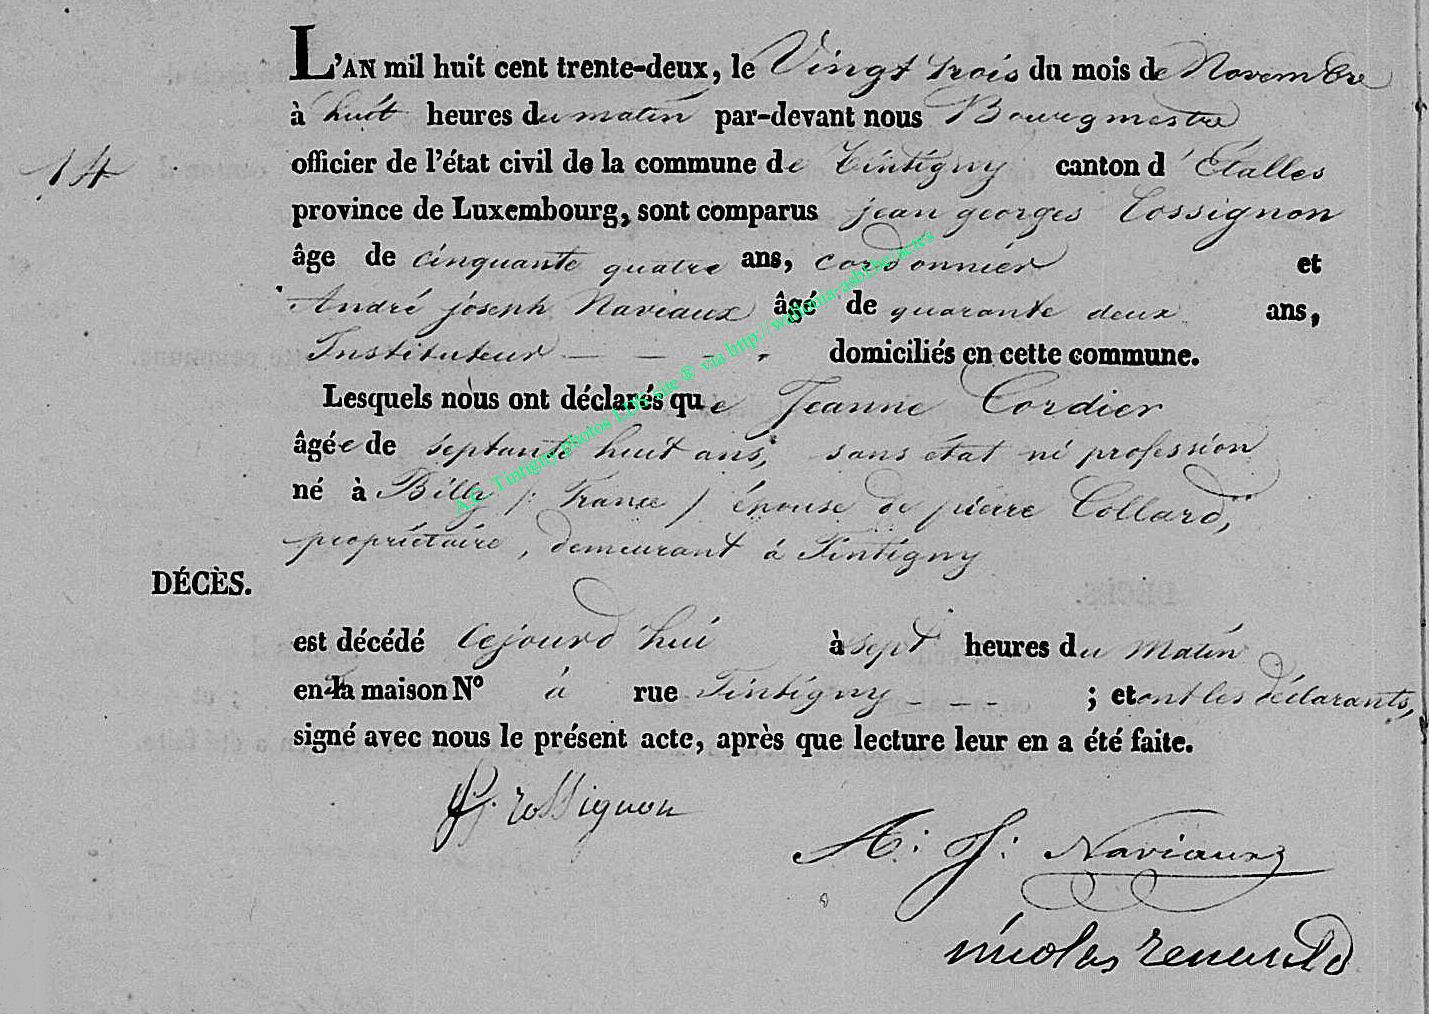 L'AN mil huit cent trente-deux, le Vingt trois du mois de Novembre
à huit heures du matin par-devant nous Bourgmestre
14
officier de l'état civil de la commune de Tintigny canton d'Étalles
province de Luxembourg, sont comparus jean georges Rossignon
âge de cinquante quatre ans, cordonnier et
André joseph Naviaux âgé de quarante deux ans,
Instituteur - - - - domiciliés en cette commune.
Lesquels nous ont déclarés que Jeanne Cordier
âgée de septante huit ans, sans état ni profession
né à Billy / France / épouse de pierre Collard,
propriétaire, demeurant à Tintigny
DÉCÈS.
est décédé cejourd hui à sept heures du Matin
en la maison Nº à rue Tintigny - - - ; et ont les déclarants,
signé avec nous le présent acte, après que lecture leur en a été faite.
rossignon
A: J: Naviaux
nicolas renauld
A.C. Tintigny photos LDH site ® via http://wallonia-asbl.be/actes